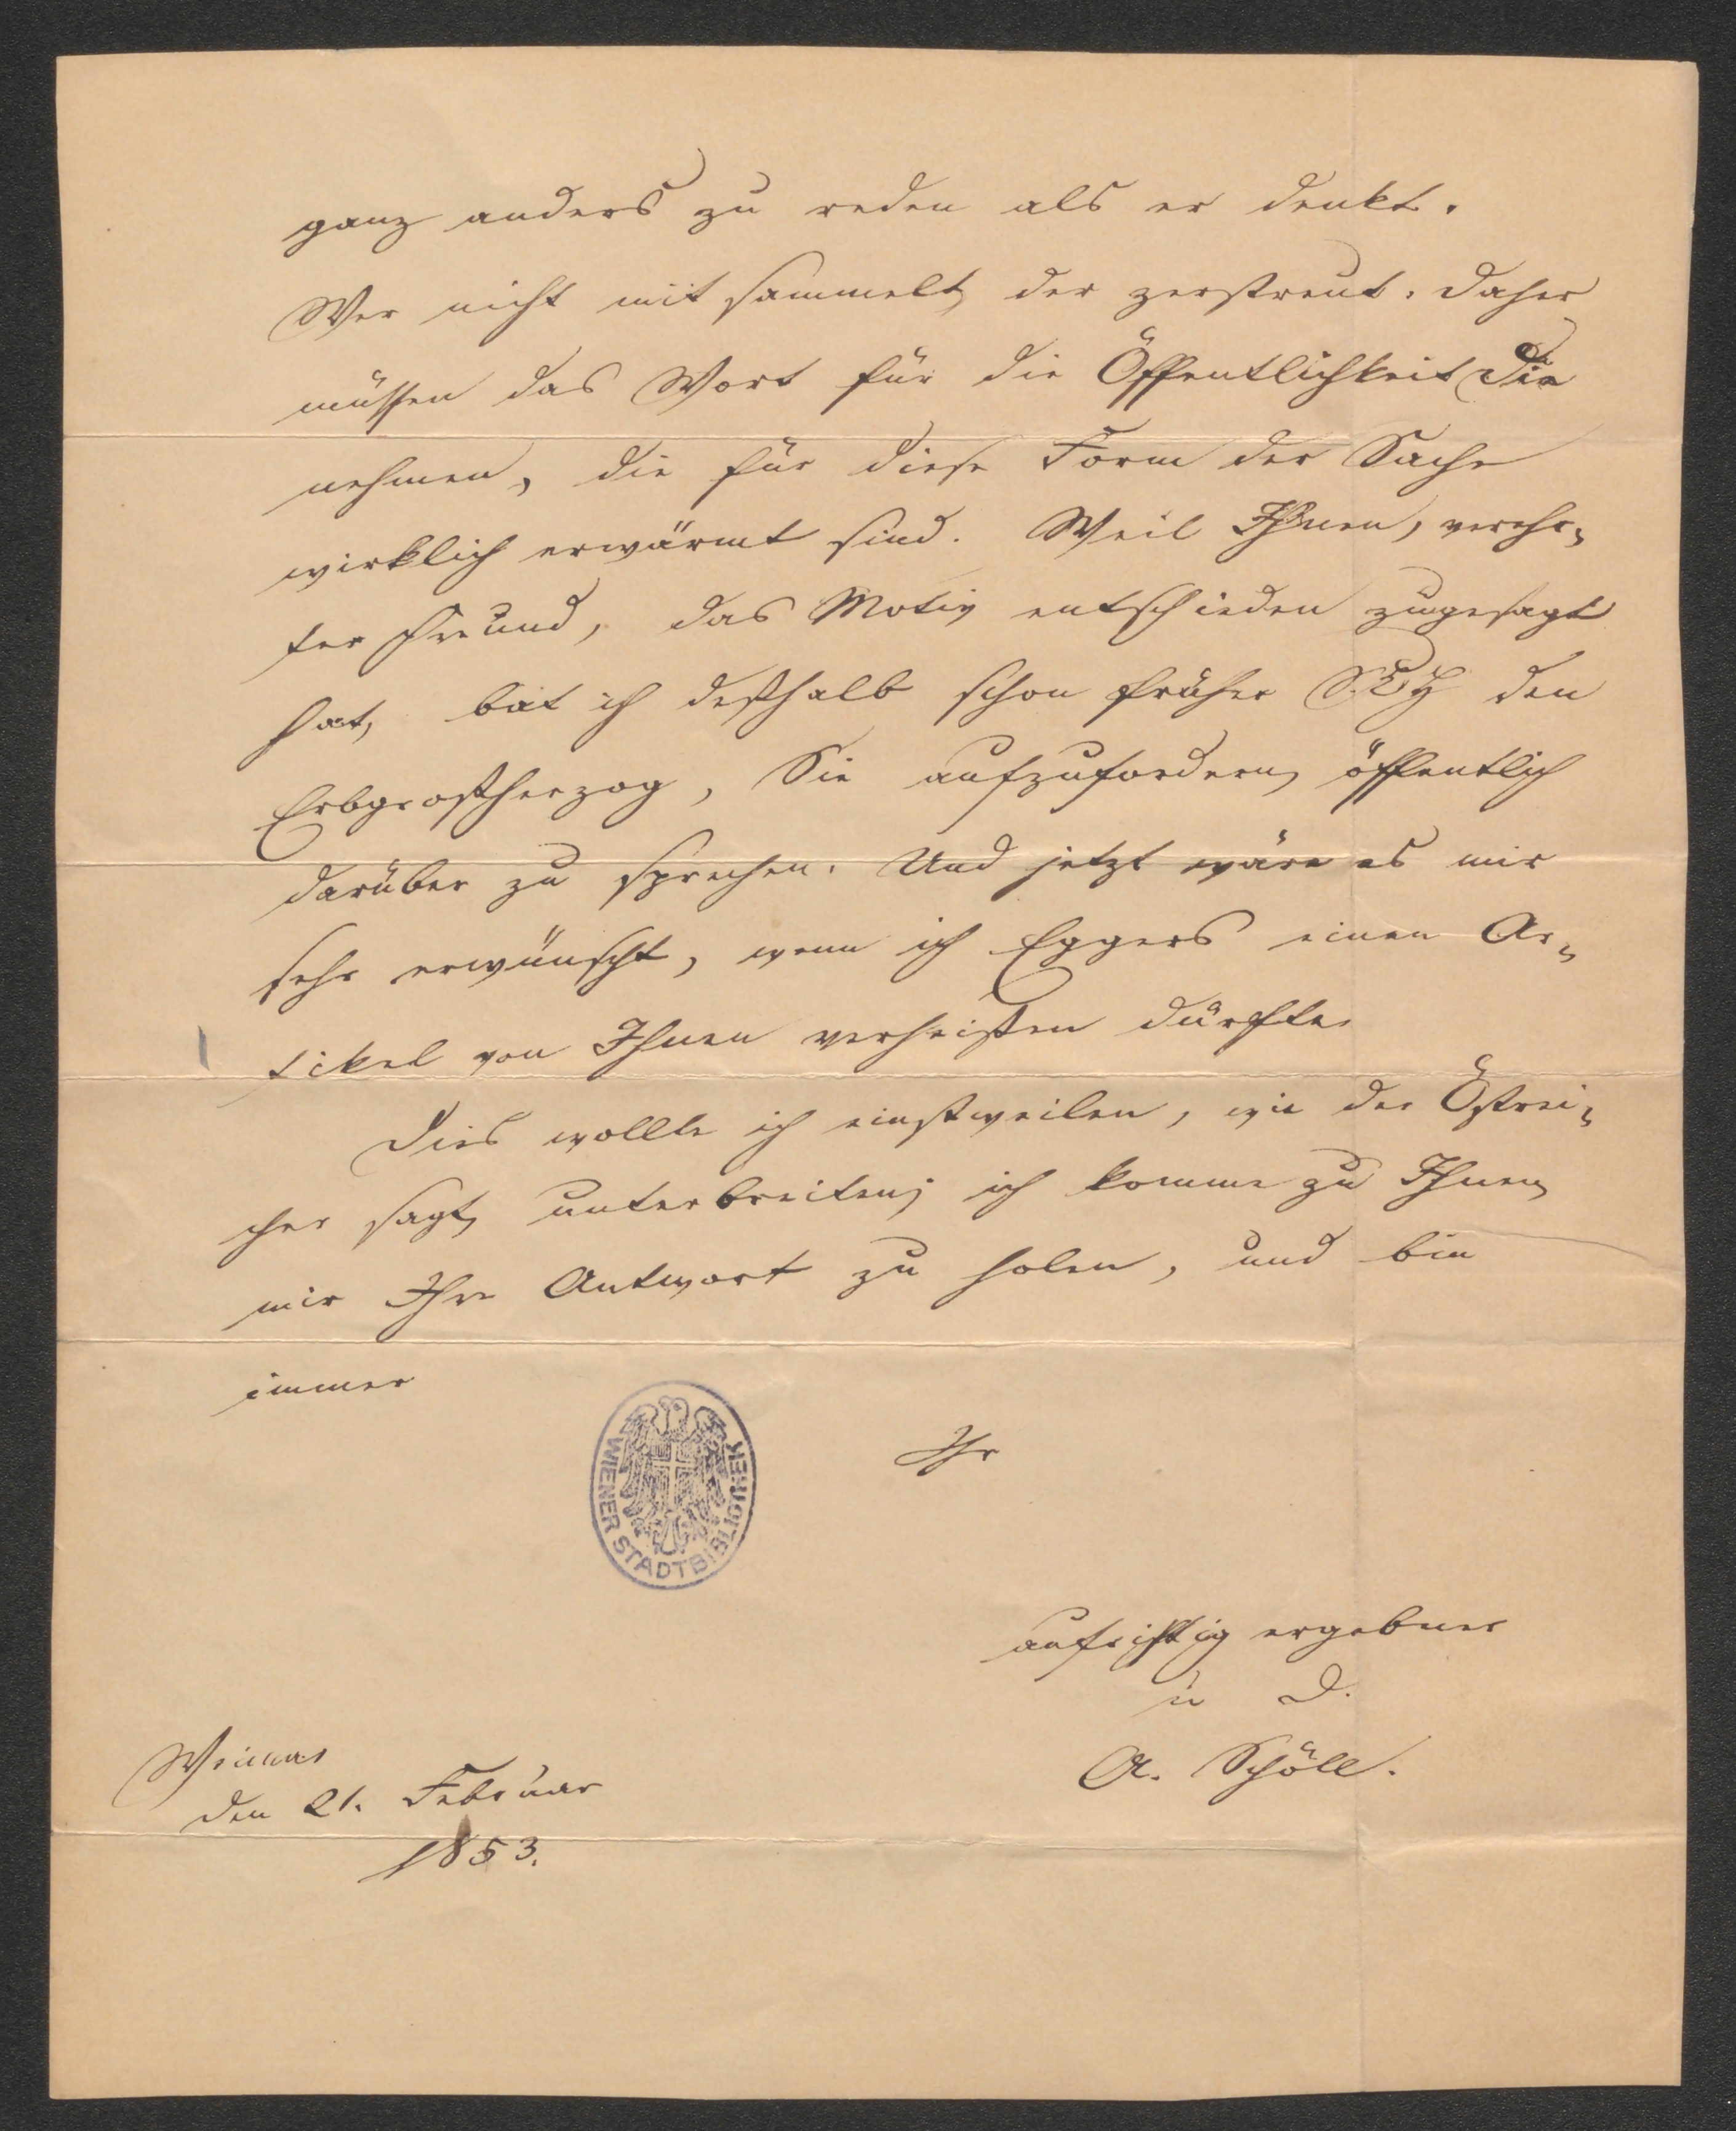 ganz anders zu reden als er denkt.
Wer nicht mit sammelt, der zerstreut. Daher
müssen das Wort für die Öffentlichkeit die
nehmen, die für diese Form der Sache
wirklich erwärmt sind. Weil Ihnen, verehr-
ter Freund, das Motiv entschieden zugesagt
hat, bat ich deßhalb schon früher den
Erbgroßherzog, Sie aufzufordern, öffentlich
darüber zu sprechen. Und jetzt wäre es mir
sehr erwünscht, wenn ich Eggers einen Ar-
tikel von Ihnen verheißen dürfte.
Dies wollte ich einstweilen, wie der Östrei-
cher sagt, unterbreiten; ich komme zu Ihnen,
mir Ihre Antwort zu holen, und bin
immer
Ihr
aufrichtig ergebner
u D.
A. Schöll.
Weimar
den 21. Februar
1853.
WIENER STADTBIBLIOTHEK